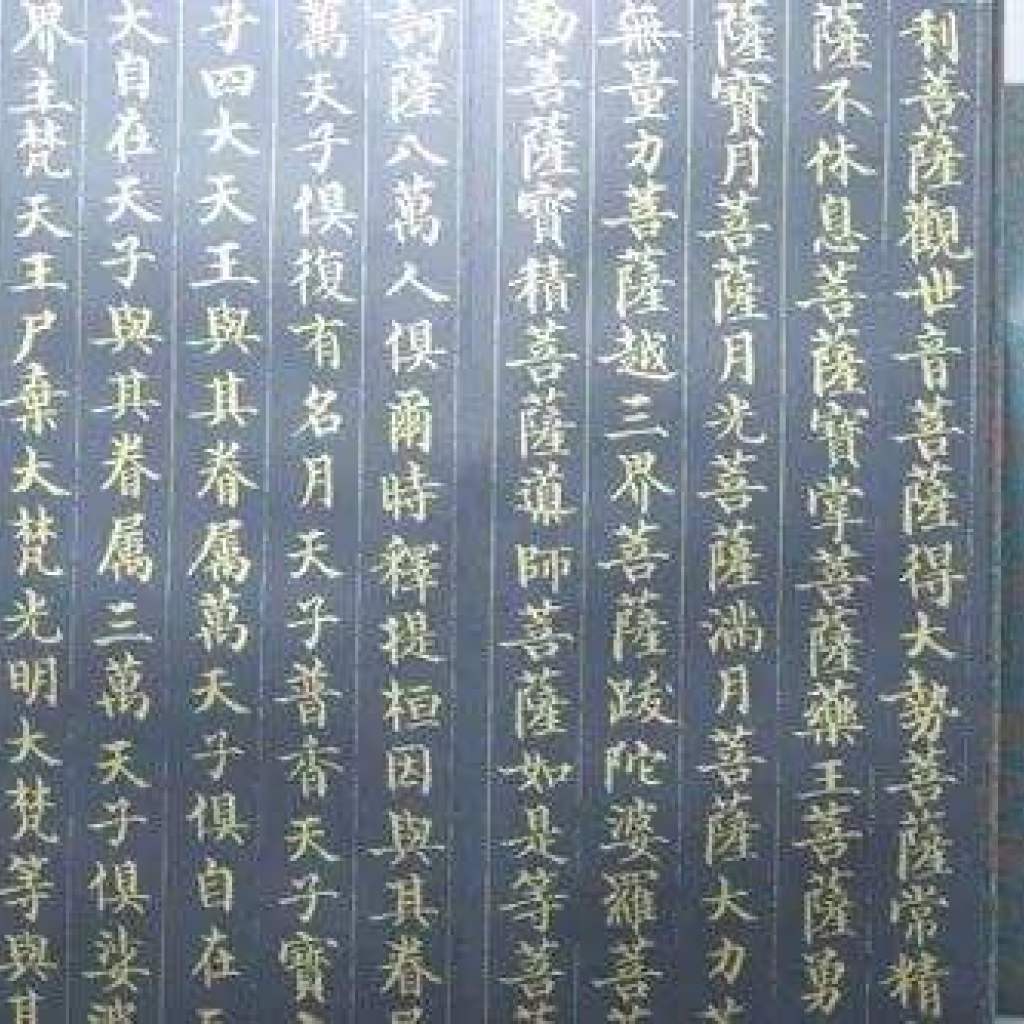 利菩薩觀世音菩薩得大勢菩薩常精
薩不休息菩薩寶掌菩薩藥王菩薩勇
薩寶月菩薩月光菩薩滿月菩薩大力
無量力菩薩越三界菩薩跋陀婆羅菩
勒菩薩寶積菩薩導師菩薩如是等菩
訶薩八萬人俱爾時釋提桓因與其眷
萬天子俱復有名月天子普香天子寶
子四大天王與其眷属萬天子俱自在
大自在天子與其眷属三萬天子俱娑婆
界主梵天王尸棄大梵光明大梵等與其